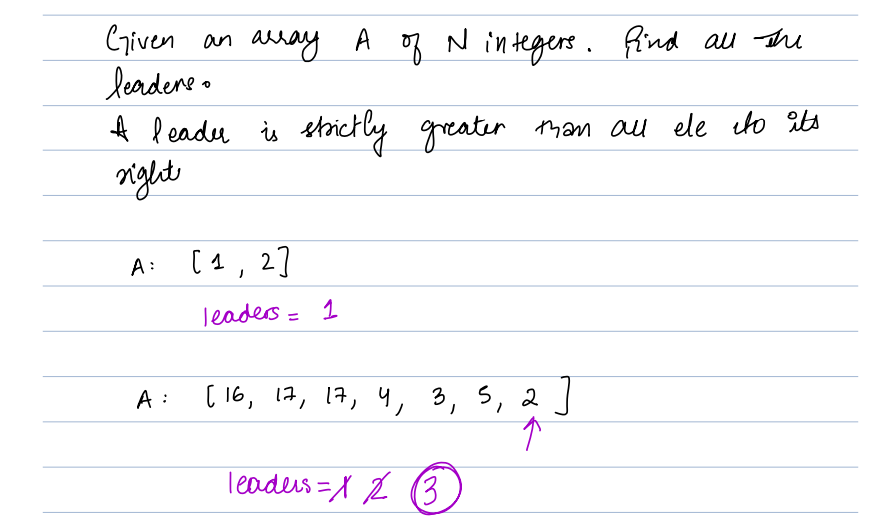 Given an array A of N integers. Find all the
leaders.
A leader is strictly greater than all ele to its
right
A: [1, 2]
leaders = 1
A: [16, 17, 17, 4, 3, 5, 2]
↑
leaders = 1 2 3